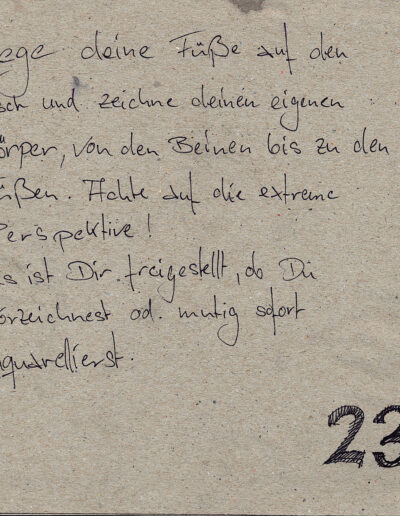 ege deine Füße auf den
sch und zeichne deinen eigenen
örper, von den Beinen bis zu den
üßen. Achte auf die extreme
Perspektive!
s ist Dir freigestellt, ob Du
orzeichnest od. mutig sofort
aquarellierst.
23